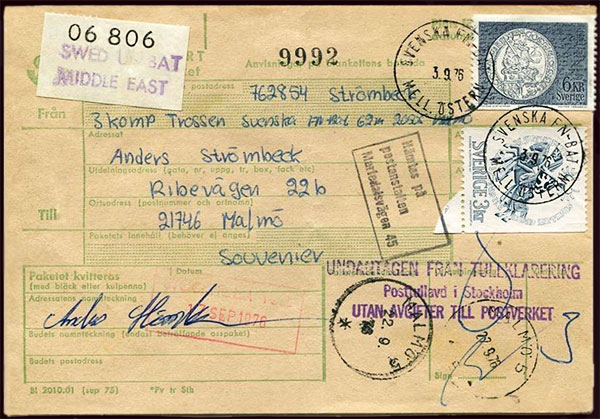 06 806
SWED UN BAT
MIDDLE EAST
9992
Anvisningar på blankettens baksida
SVENSKA FN-BAT
3.9.76
MELL.ÖSTERN
6 KR
Sverige
762854 Strömbeck
Från
3 komp Trossen Svenska FN-BAT 62m
Adressat
Anders Strömbeck
Utdelningsadress (gata, nr, uppg, tr, box, fack etc)
Ribevägen 22b
Ortadress (postnummer och ortnamn)
Till
21746 Malmö
Paketets innehåll (behöver ej anges)
Souvenier
Hämtas på
postanstalten
Mariedalsvägen 45
SVENSKA FN-BAT
3.9.76
MELL.ÖSTERN
SVERIGE 3kr
Paketet kvitteras
(med bläck eller kulpenna)
Datum
Adressatens namnteckning
SEP 1976
Budets namnteckning (endast beträffande postpaket)
Budets postadress
BI 2010.01 (sep 75)
*Pv tr Sth
UNDANTAGEN FRÅN TULLKLARERING
Posttullavd i Stockholm
UTAN AVGIFTER TILL POSTVERKET
MALMÖ 5
22.9.
76
MALMÖ 5
22.9.76
Sign